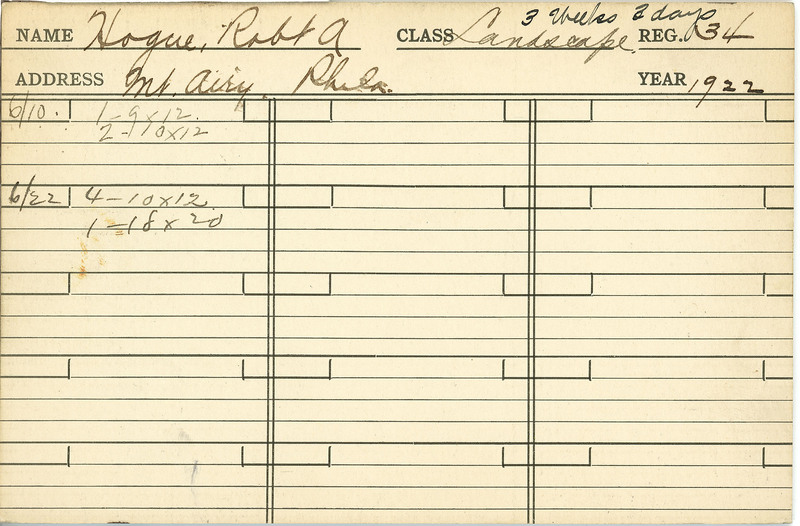 3 Weeks 3 days
NAME Hogue, Robt A CLASS Landscape REG. 134
ADDRESS Mt. Airy, Phila. YEAR 1922
6/10. 1-9x12.
2-10x12
6/22 4-10x12
1-18x20